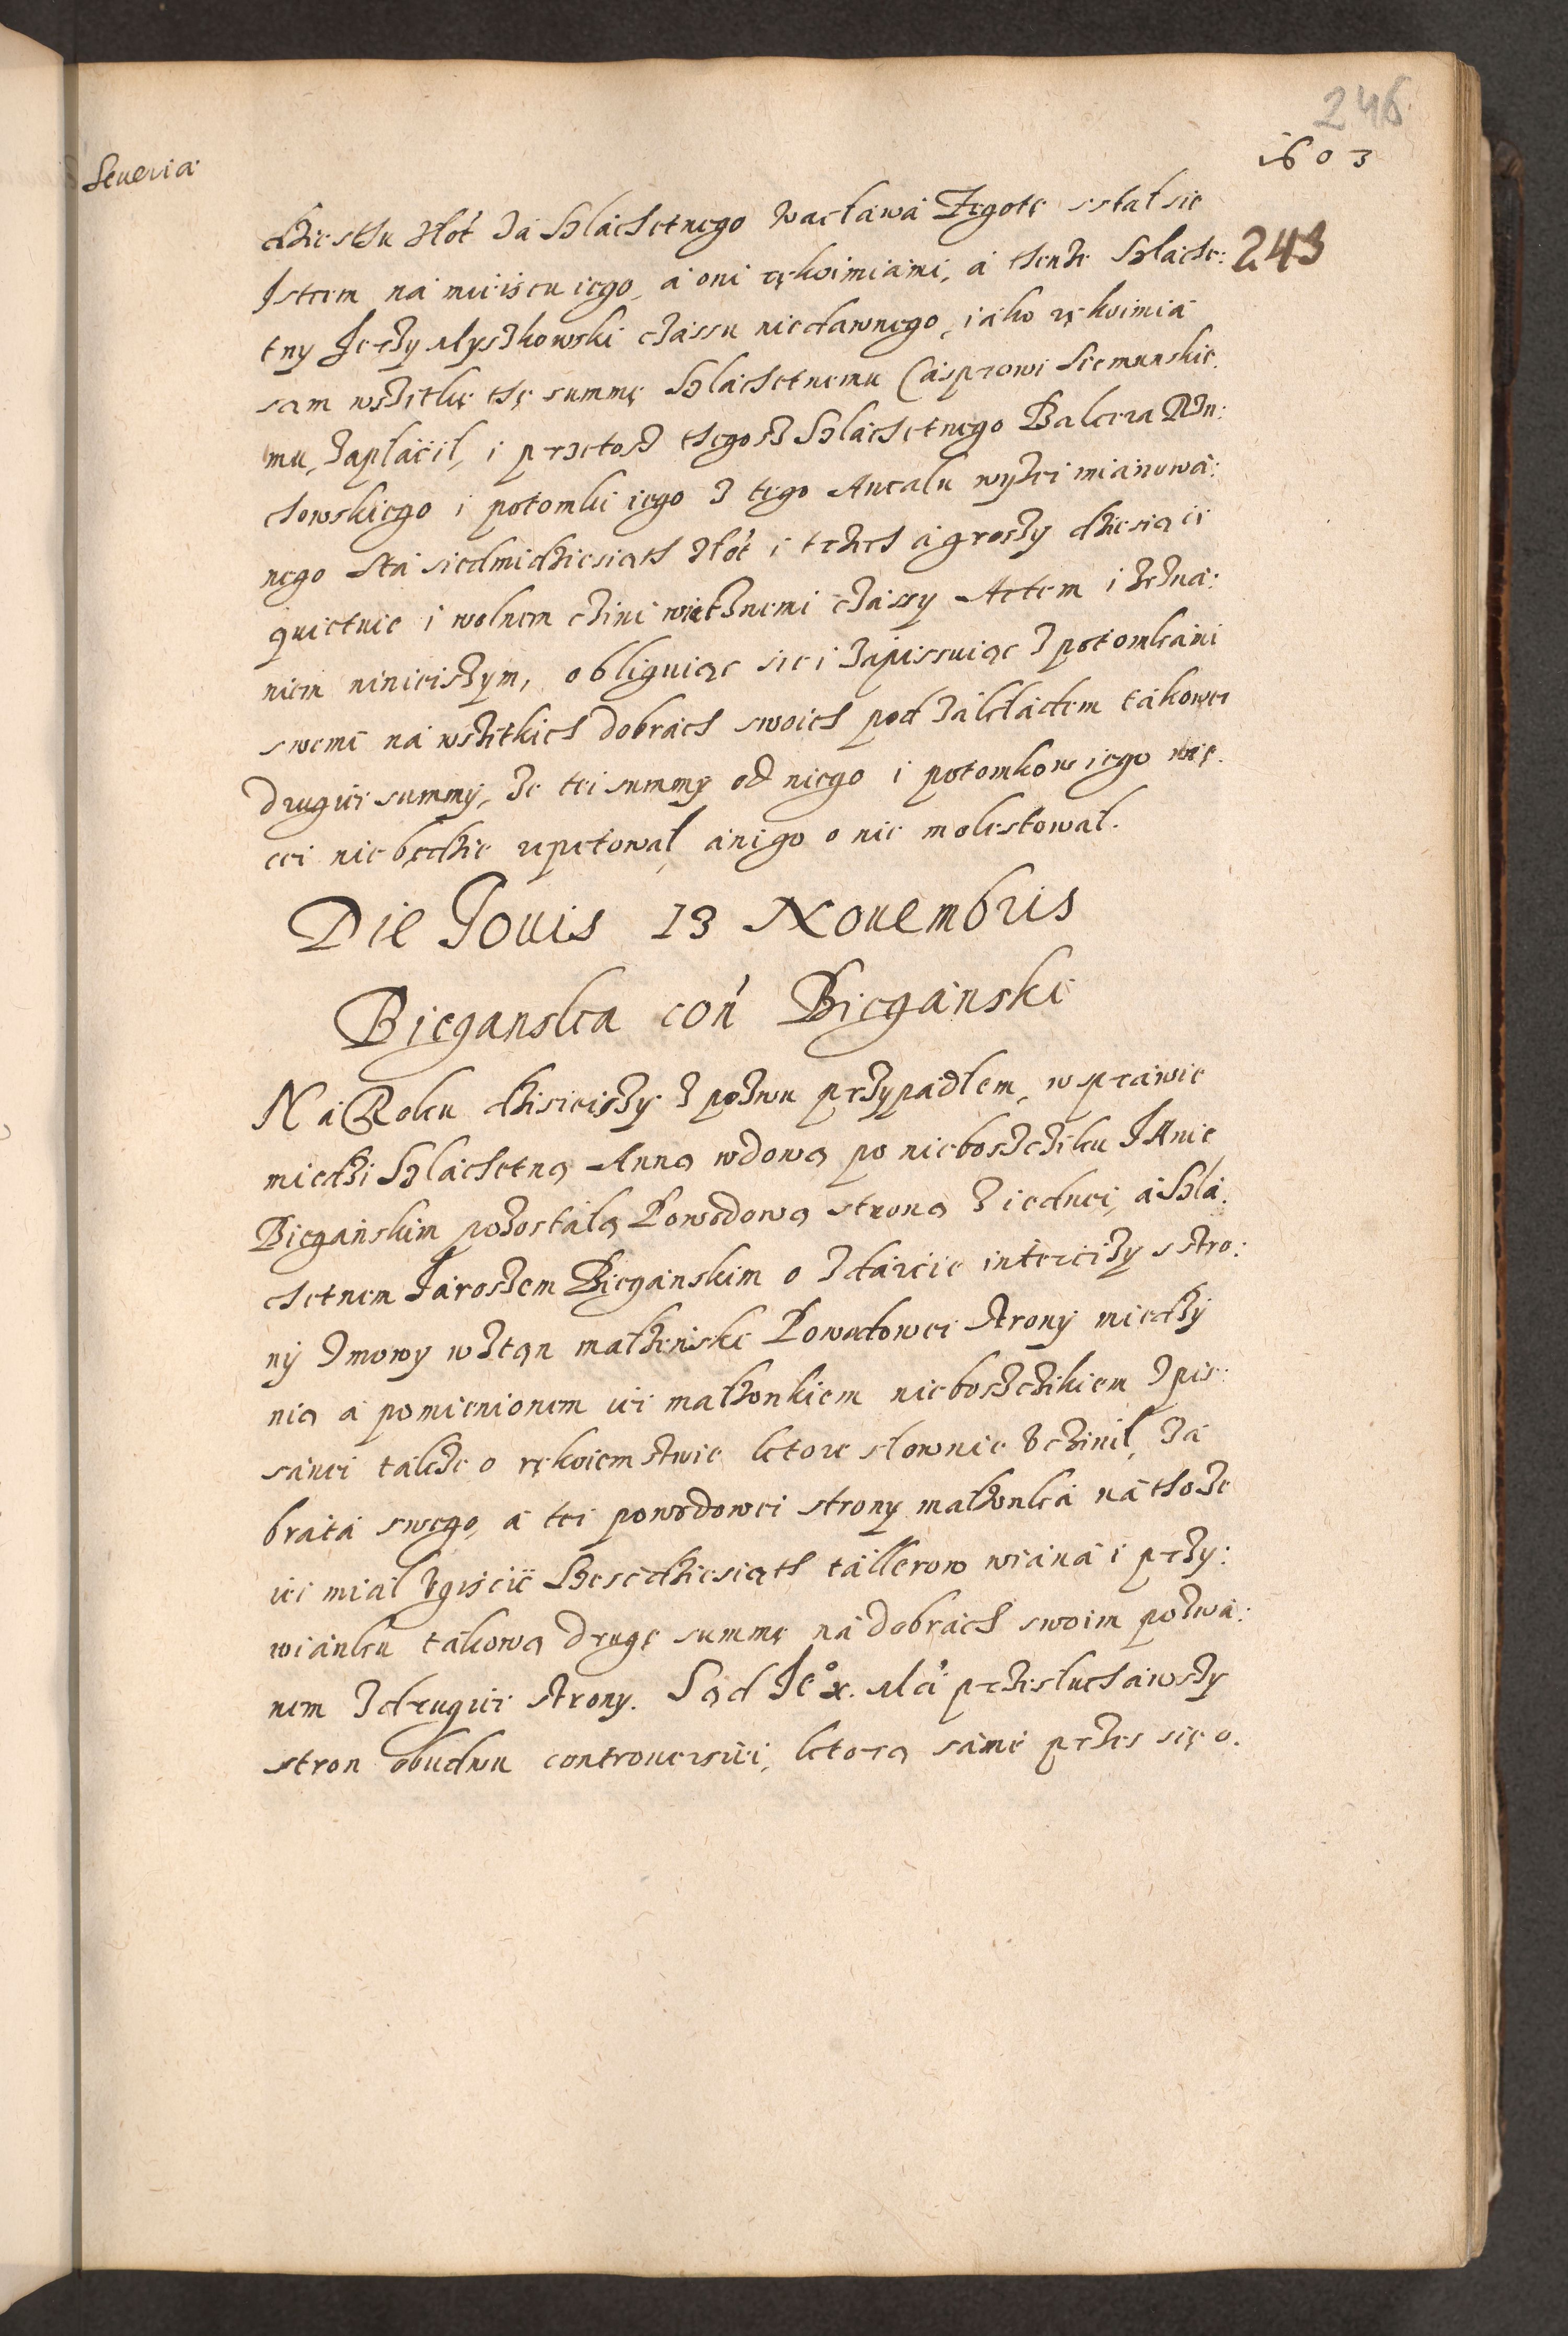 246
1603
Seueria
243
dziesthu złot za Szlachetnego Wacława Zegotę sstał sie
Istcem na mieiscu iego, a oni rękoimiami, a thenze Szlache:
tny Jerzy Myszkowski czassu niedawnego, iako rękoimia
sam wszitkę thę summę Szlachetnemu Casprowi Siemunskie.
mu, zapłacił, i przetosz thegosz Szlachetnego Balcera
chowskiego i potomki iego z tego Antalu wyzei mianowa:
nego sta siedmidziesiath złot i trzech a groszy dziesiąci
quietuie i wolnem czini wietznemi czassy Actem i zezna:
niem ninieiszym, obliguiąc sie i zapissuiąc z potomkami
swemi na wszitkich dobrach swoich pod zakładem takowei
drugiei summy, ze tei summy od niego i potomkow iego wię.
cei nie będzie repetował, ani go o nie molestował.
Die Jouis 13 Nouembris
Bieganska coń Biegański
Na Roku dzisieiszy z pozwu przypadłem, w sprawie
miedzi Szlachetną Anną wdową po nieboszcziku Janie
Biegańskim pozostałą Powodową stroną z iednei, a Szla:
chetnem Jaroszem Bieganskim o zdarcie intercizy s stro:
ny zmowy w stan małzenski Powodowei strony miedzy
nią a pomienionem iei małzonkiem nieboszczikiem spis:
sanei takze o rękoiemstwie ktore słownie vczinił, za
brata swego, a tei powodowei strony małzonka na thoze
iei miał vgiscić Szescdziesiath tallerow wiana i przy:
wianku takową drugę summę na dobrach swoim pozwa:
nem z drugiei strony. Sąd Je° x. Mći przesłuchawszy
stron obudwu controuersiei, ktorą sami przes się o.